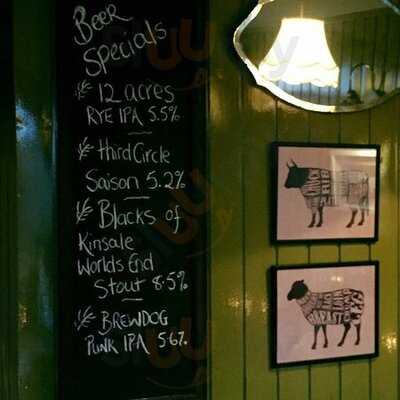 Beer
Specials
12 acres
RYE IPA 5.5%
third Circle
Saison 5.2%
Blacks of
Kinsale
Worlds End
Stout 8.5%
BREWDOG
PUNK IPA 5.6%
CHUCK
RIB